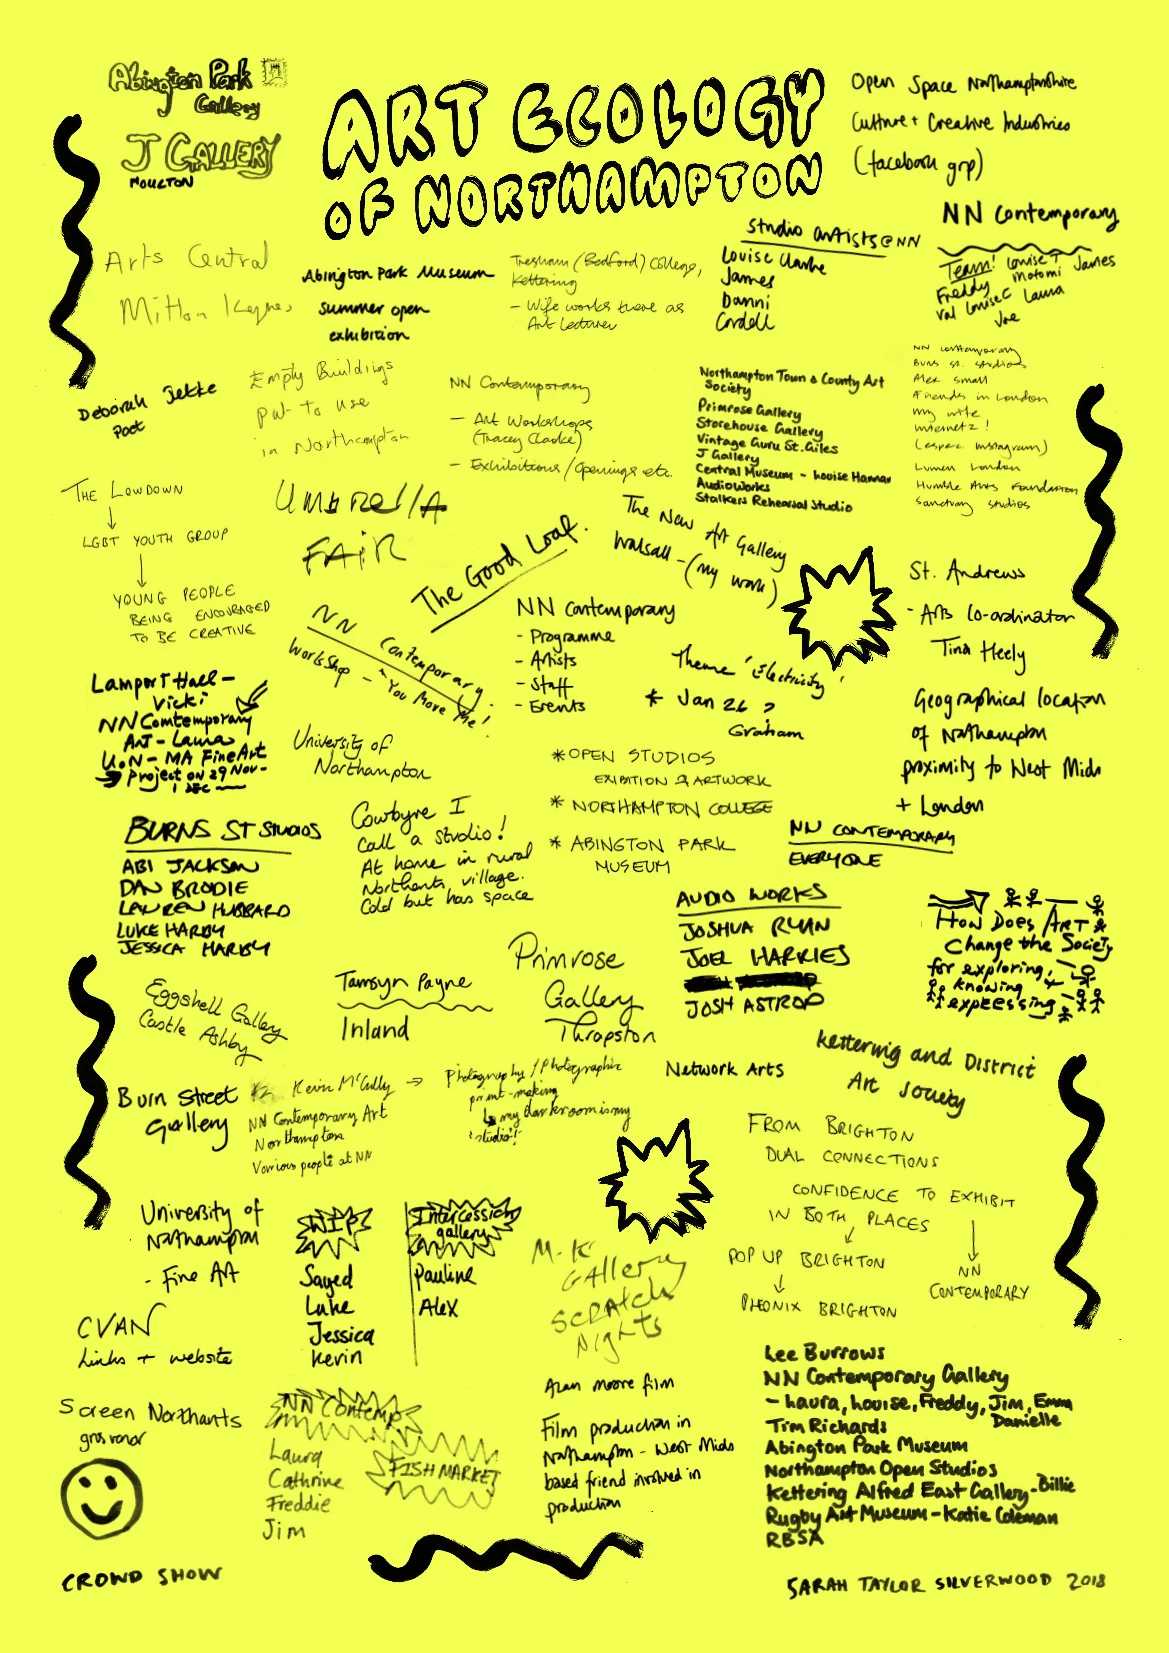 Abington Park
Gallery
J GALLERY
MOULTON
ART ECOLOGY
OF NORTHAMPTON
Open Space Northamptonshire
Culture + Creative Industries
(facebook grp)
Arts Central
Milton Keynes
Abington Park Museum
summer open
exhibition
Tresham (Bedford) College,
Kettering
- Wife works there as
Art Lecturer
Studio artists @ NN
Louise Clarke
James
Danni
Cordell
NN Contemporary
Team! Louise T James
Freddy Motomi
Val Louise C Laura
Joe
Deborah Jekke
Poet
Empty Buildings
put to use
in Northampton
NN Contemporary
- Art Workshops
(Tracey Clarke)
- Exhibitions/Openings etc.
Northampton Town & County Art
Society
Primrose Gallery
Storehouse Gallery
Vintage Guru St. Giles
J Gallery
Central Museum - Louise Hannan
AudioWorks
Stalkers Rehearsal Studio
NN Contemporary
Burns St. Studios
Alex Small
Friends in London
My wife
Internetz!
(espec. Instagram)
Lumen London
Humble Arts Foundation
Sanctuary Studios
THE LOWDOWN
LGBT YOUTH GROUP
YOUNG PEOPLE
BEING ENCOURAGED
TO BE CREATIVE
Umbrella
FAiR
The Good Loaf.
The New Art Gallery
Walsall - (my work)
NN Contemporary.
Workshop - "You Move Me!
NN Contemporary
- Programme
- Artists
- Staff
- Events
Theme 'Electricity'
* Jan 26 >
Graham
St. Andrews
- Arts Co-ordinator
Tina Heely
Lamport Hall -
Vicki
NN Comtemporary
Art - Laura
UoN - MA Fine Art
Project on 29 Nov -
1 DEC
University of
Northampton
* OPEN STUDIOS
EXIBITION & ARTWORK
* NORTHAMPTON COLLEGE
* ABINGTON PARK
MUSEUM
Geographical location
of Northampton
proximity to West Mids
+ London
NN CONTEMPORARY
EVERYONE
BURNS ST STUDIOS
ABI JACKSON
DAN BRODIE
LAUREN HUBBARD
LUKE HARBY
JESSICA HARBY
Cowbyre I
call a studio!
At home in rural
Northants village.
Cold but has space
AUDIO WORKS
JOSHUA RYAN
JOEL HARRIES
JOSH ASTROP
HOW DOES ART
Change the Society
for exploring,
knowing +
expressing
Eggshell Gallery
Castle Ashby
Tamsyn Payne
Inland
Primrose
Gallery
Thrapston
Network Arts
Kettering and District
Art Society
Burn Street
Gallery
Kevin McCully → Photography/Photographic
print-making
my darkroom is my
'studio'!
NN Contemporary Art
Northampton
Various people at NN
FROM BRIGHTON
DUAL CONNECTIONS
CONFIDENCE TO EXHIBIT
IN BOTH PLACES
POP UP BRIGHTON
PHEONIX BRIGHTON
NN
CONTEMPORARY
University of
Northampton
- Fine Art
WIPS
Sayed
Luke
Jessica
Kevin
Intercession
gallery
Pauline
Alex
M.K
GALLERY
SCRATCH
Nights
CVAN
Links + website
Screen Northants
grosvenor
NN Contemp
FISH MARKET
Laura
Cathrine
Freddie
Jim
Alan Moore film
Film production in
Northampton - West Mids
based friend involved in
production
Lee Burrows
NN Contemporary Gallery
- Laura, Louise, Freddy, Jim, Emma
Danielle
Tim Richards
Abington Park Museum
Northampton Open Studios
Kettering Alfred East Gallery - Billie
Rugby Art Museum - Katie Coleman
RBSA
CROWD SHOW
SARAH TAYLOR SILVERWOOD 2018